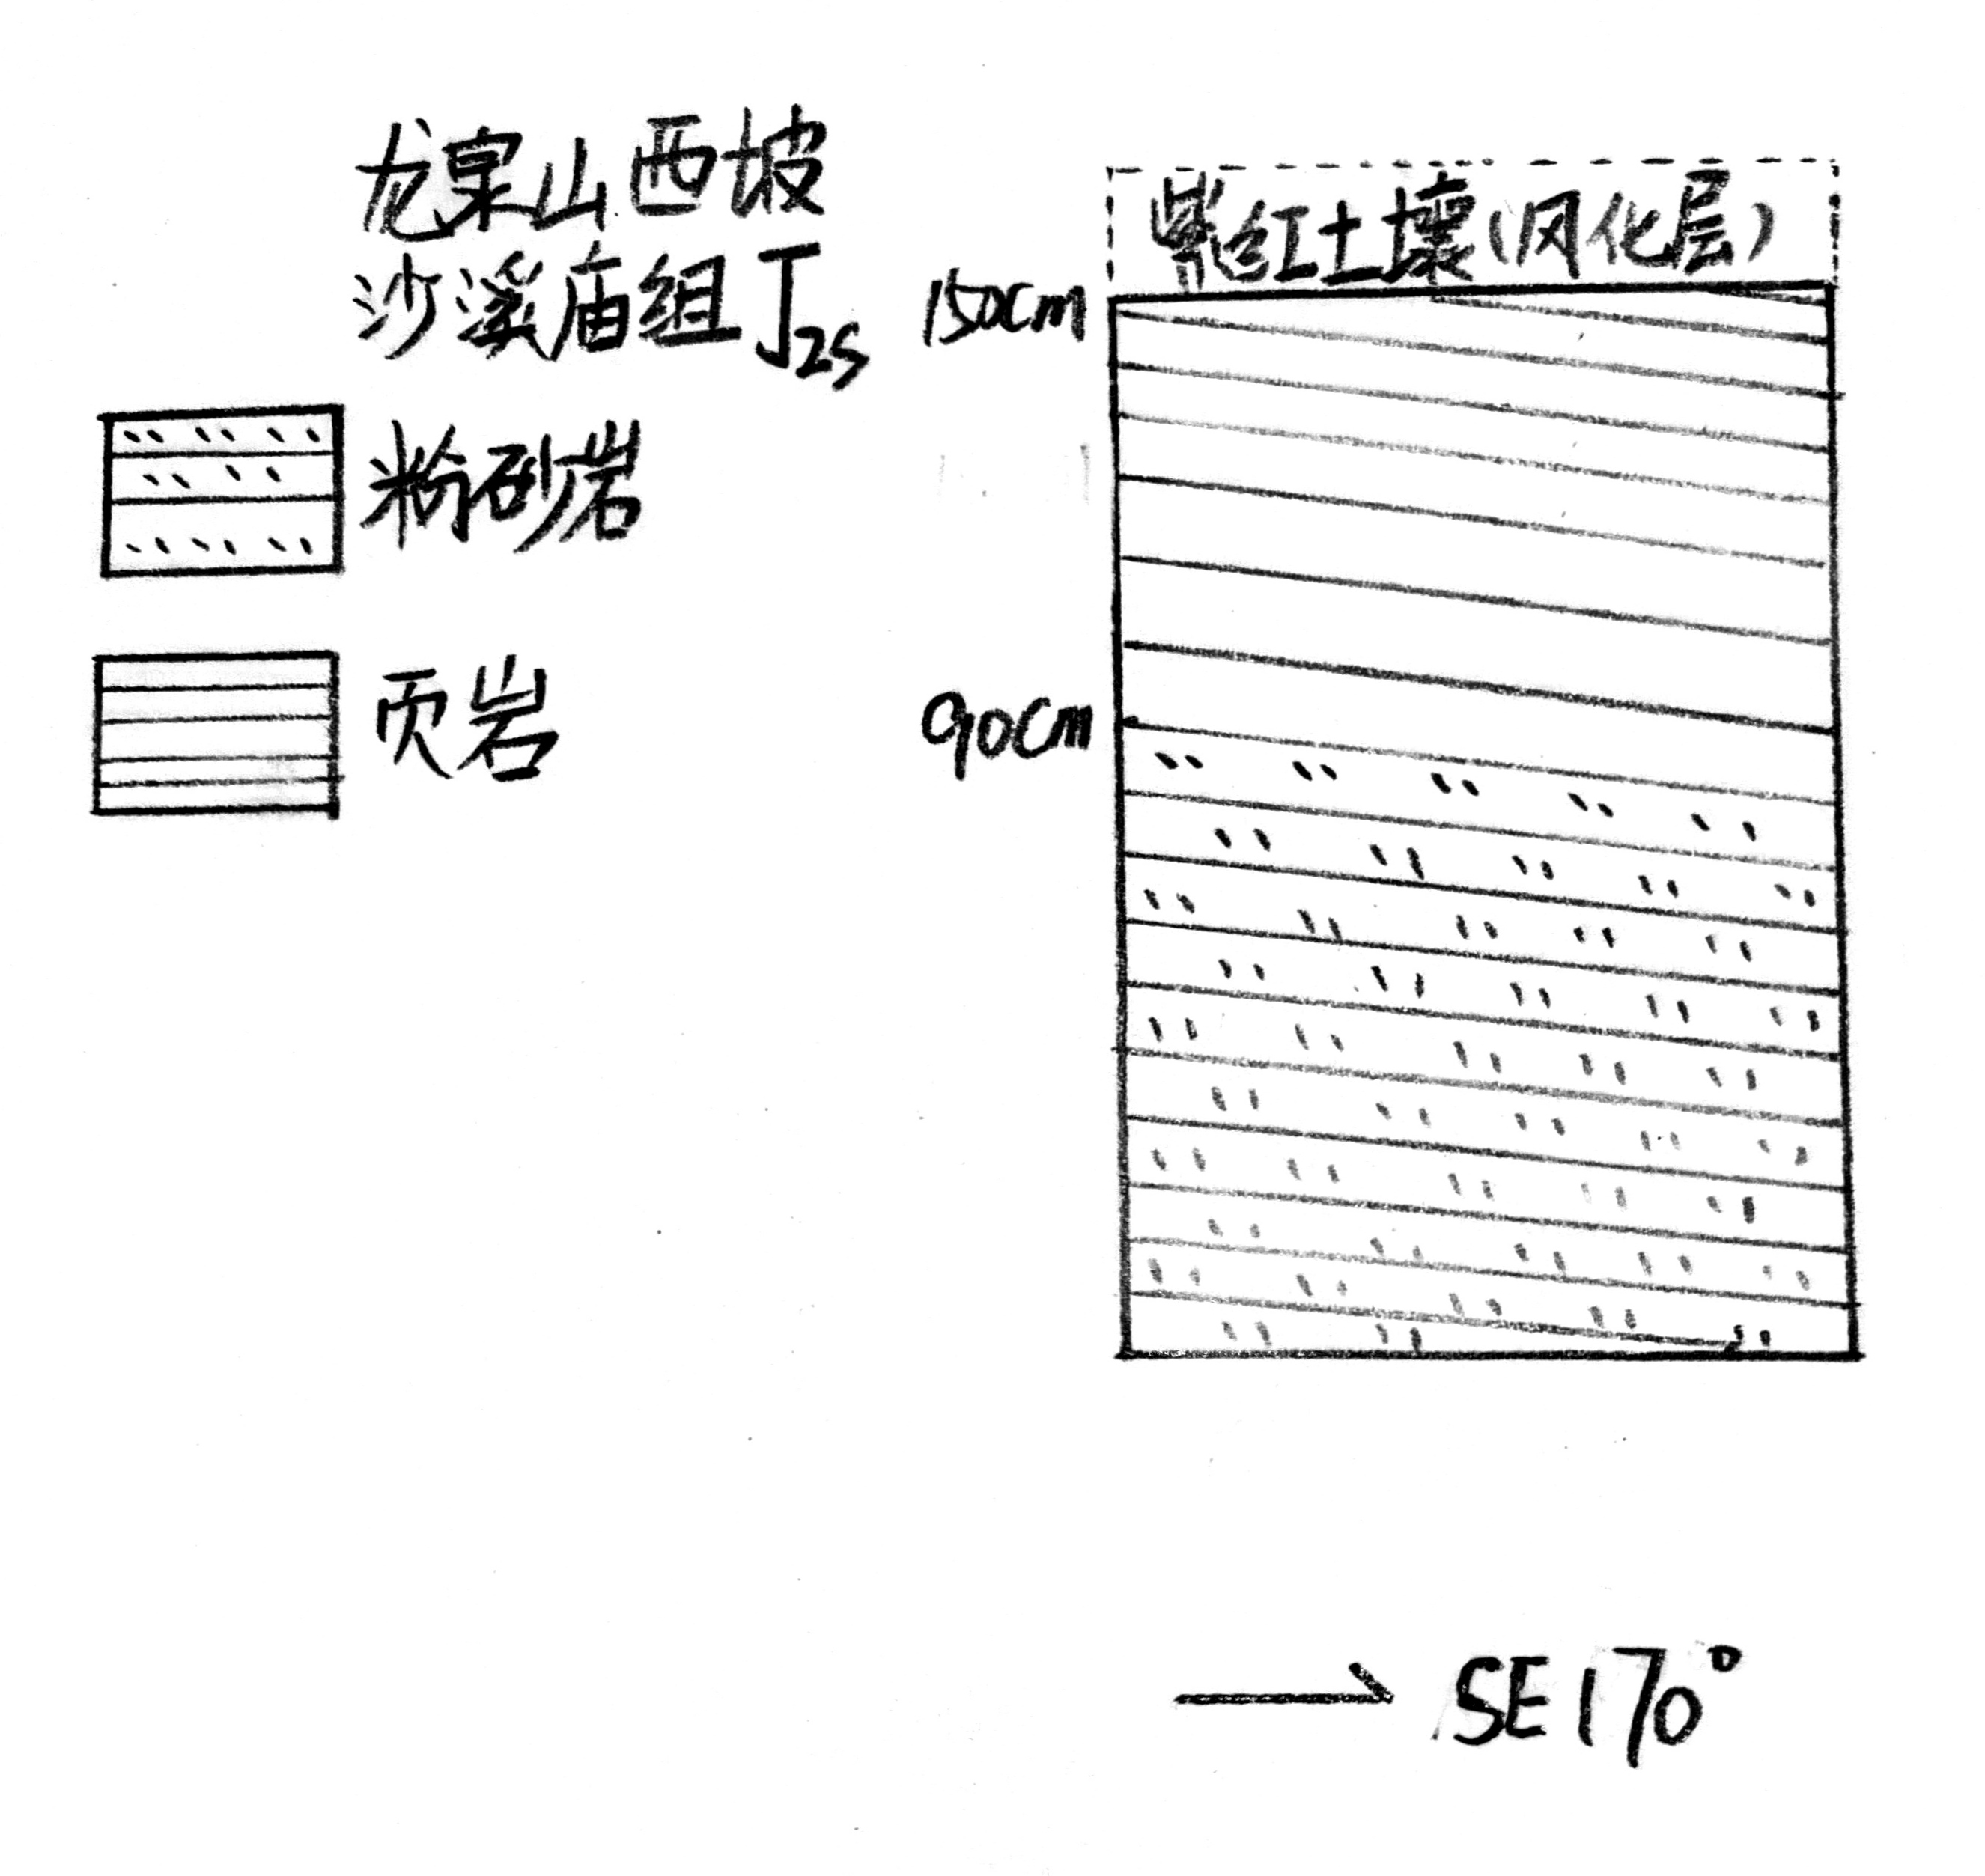 龙泉山西坡
沙溪庙组J2S
粉砂岩
页岩
紫红土壤(风化层)
150cm
90cm
SE170°